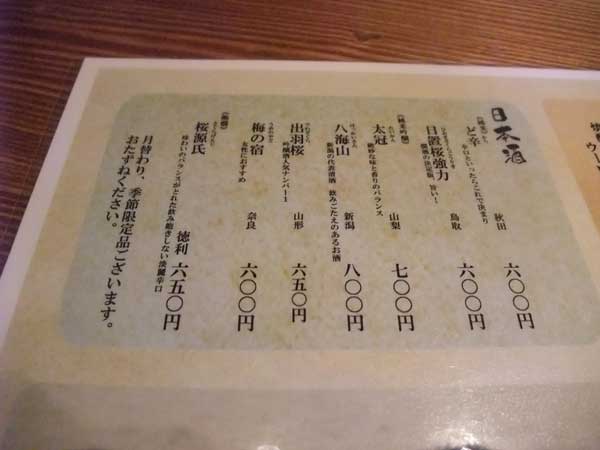 日本酒
《純米》
ど辛 秋田 六〇〇円
辛口といったらこれで決まり
日置桜強力 鳥取 六〇〇円
燗酒の決定版、旨い!
《純米吟醸》
太冠 山梨 七〇〇円
絶妙な味と香りのバランス
八海山 新潟 八〇〇円
新潟の代表清酒 飲みごたえのあるお酒
出羽桜 山形 六五〇円
吟醸酒人気ナンバー1
梅の宿 奈良 六〇〇円
女性におすすめ
桜源氏 徳利 六五〇円
味わいのバランスがとれた飲み飽きしない淡麗辛口
月替わり、季節限定品ございます。
おたずねください。